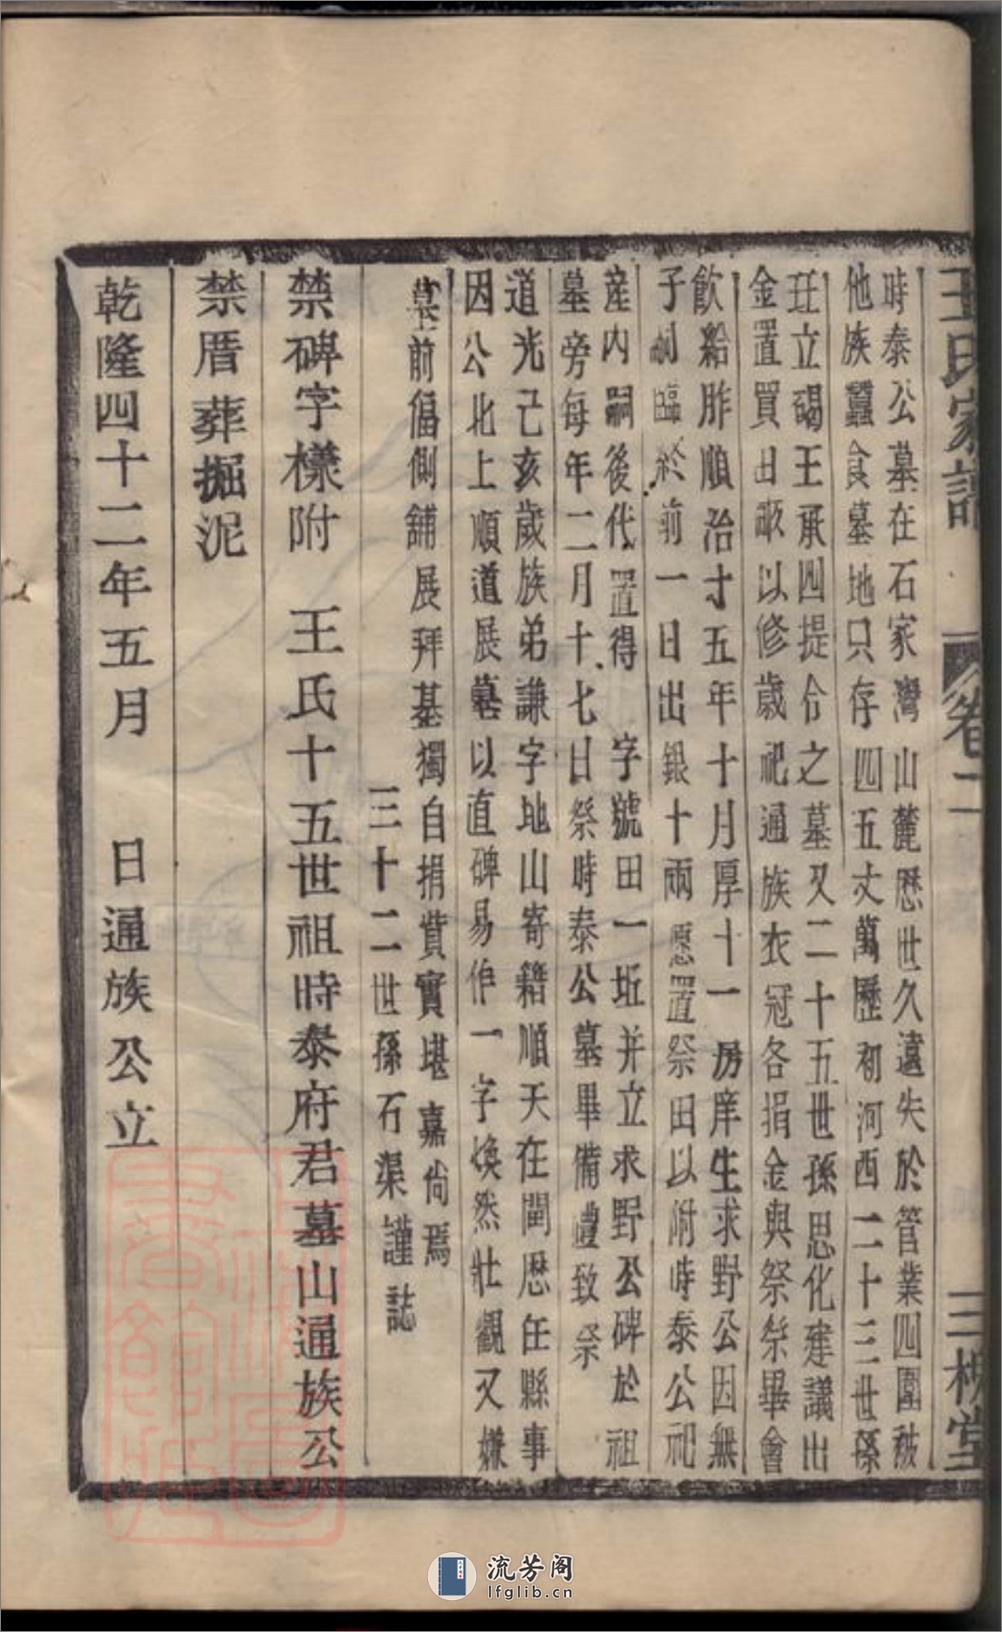 王氏家譜
卷二
三槐堂
時泰公墓在石家灣山麓歷世久遠失於管業四圍被
他族蠶食墓地只存四五丈萬歷初河西二十三世孫
玨立碣王承四提仝之墓又二十五世孫思化建議出
金置買田畝以修歲祀通族衣冠各捐金與祭祭畢會
飲給胙順治十五年十月厚十一房庠生求野公因無
子嗣臨終前一日出銀十兩愿置祭田以附時泰公祀
産内嗣後代置得 字號田一坵并立求野公碑於祖
墓旁每年二月十七日祭時泰公墓畢備禮致祭
道光己亥歲族弟謙字地山寄籍順天在閩歷任縣事
因公北上順道展墓以直碑易作一字煥然壯觀又嫌
墓前偪側舖展拜基獨自捐貲實堪嘉尚焉
三十二世孫石渠謹誌
禁碑字樣附 王氏十五世祖時泰府君墓山通族公
禁厝葬掘泥
乾隆四十二年五月 日通族公立
流芳阁
lfglib.cn